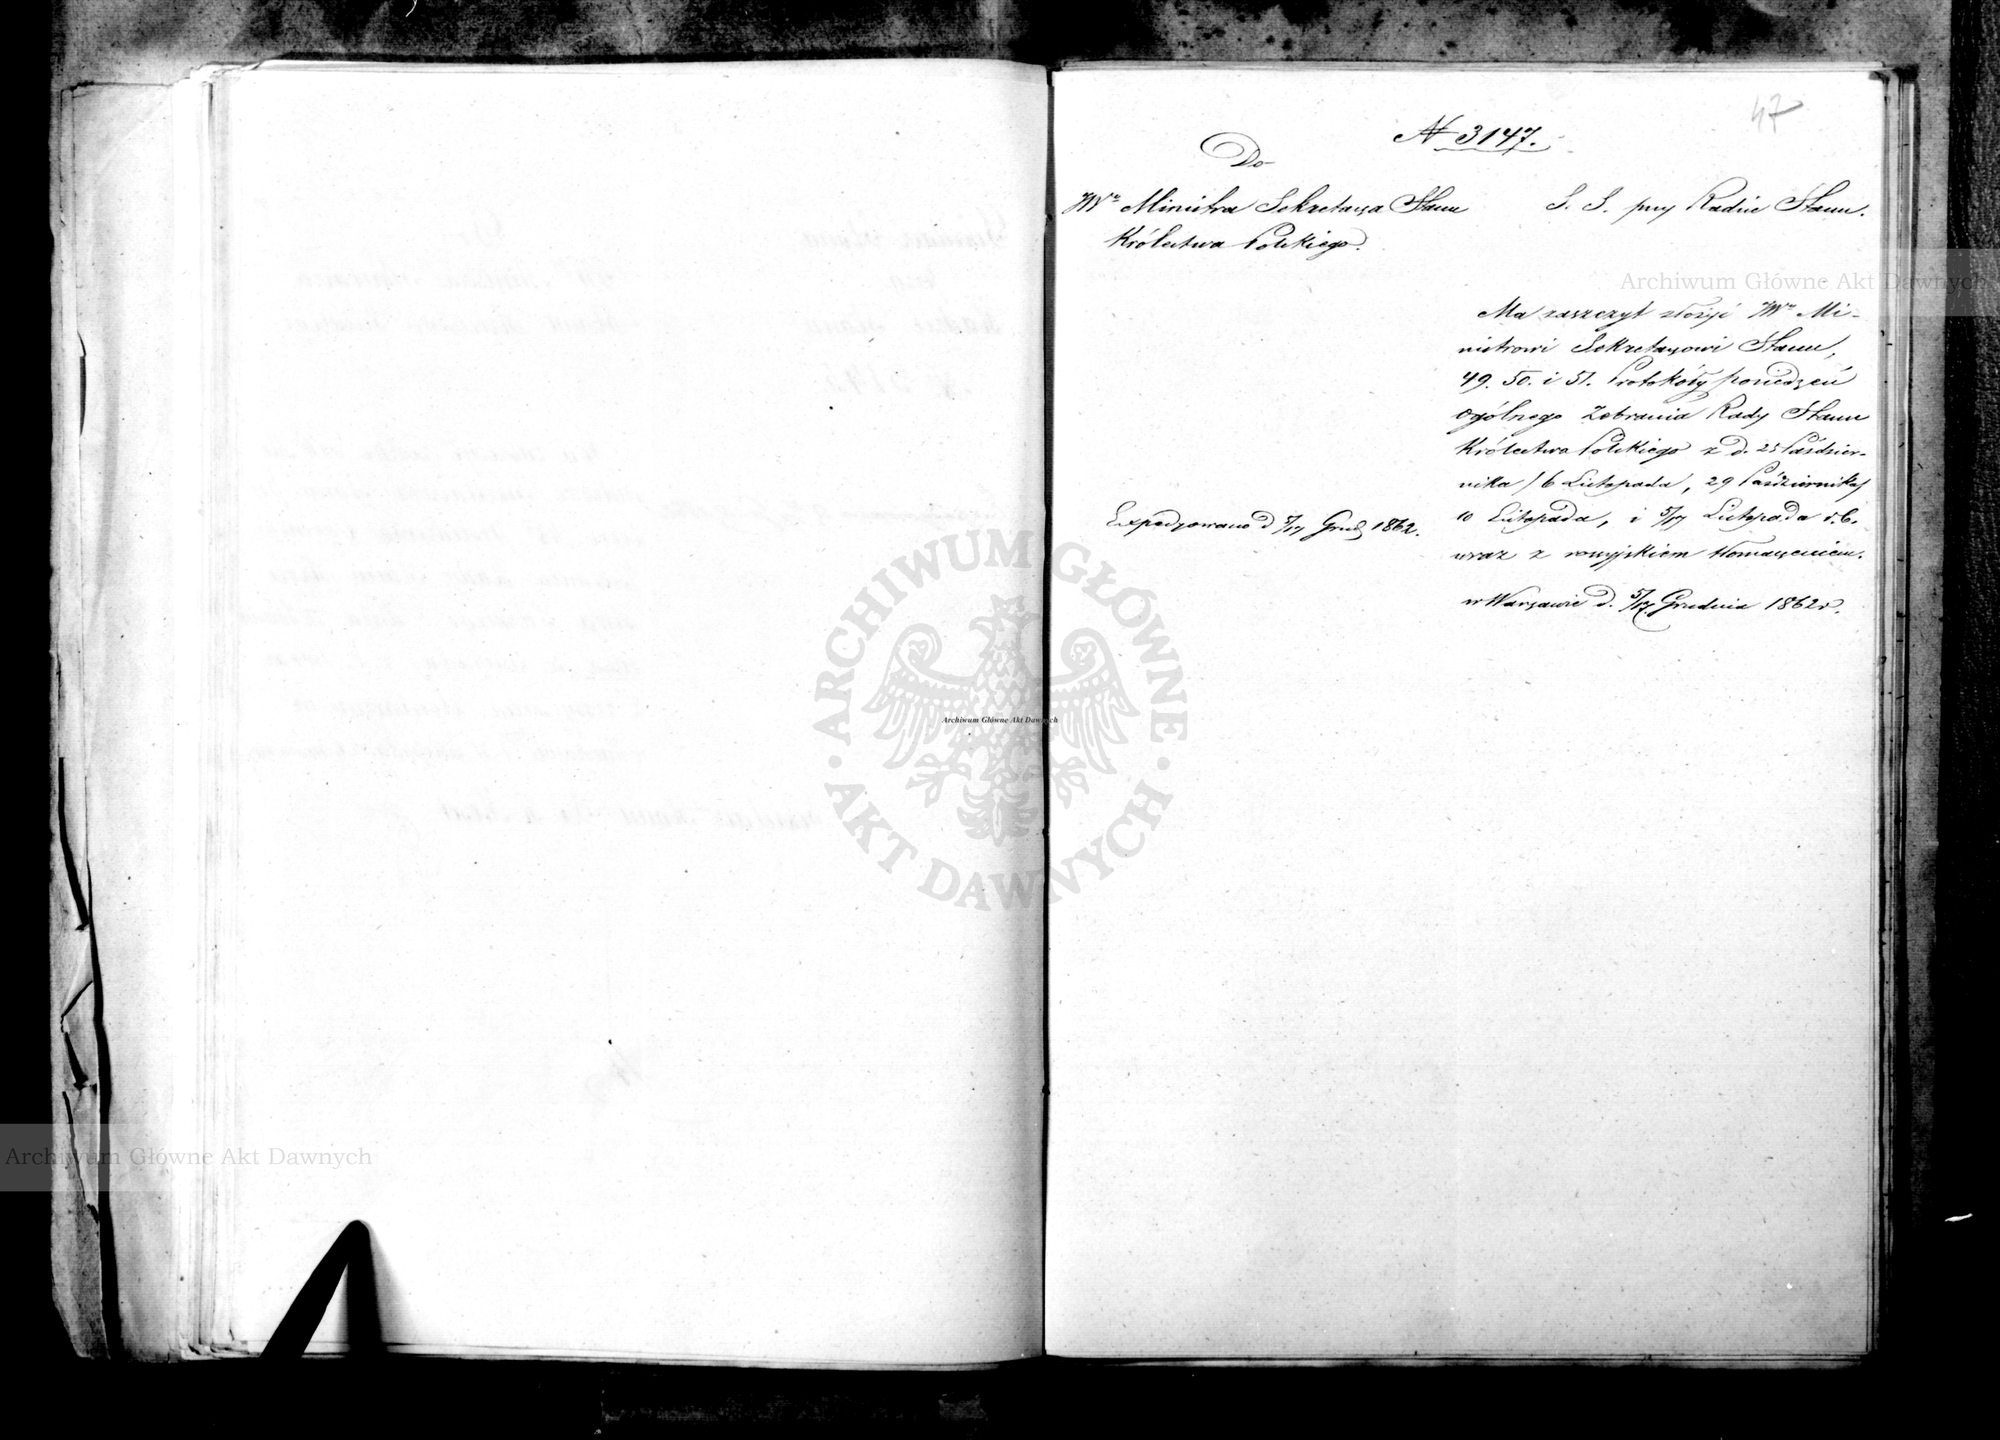 47
N 3147.
Do
JWo Ministra Sekretarza Stanu
Królestwa Polskiego.
S. S. przy Radzie Stanu.
Ma zaszczyt złożyć JWu Mi-
nistrowi Sekretarzowi Stanu,
49. 50. i 51. Protokóły posiedzeń
ogólnego Zebrania Rady Stanu
Królestwa Polskiego z d. 25 Paździer-
nika / 6 Listopada, 29 Października/
10 Listopada, i 5/17 Listopada r. b.
wraz z rossyjskiem tłomaczeniem.
w Warszawie d. 5/17 Grudnia 1862 r.
Expedyowano d 5/17 Grud 1862.
Archiwum Główne Akt Dawnych
ARCHIWUM GŁÓWNE · AKT DAWNYCH ·
Archiwum Główne Akt Dawnych
Archiwum Główne Akt Dawnych